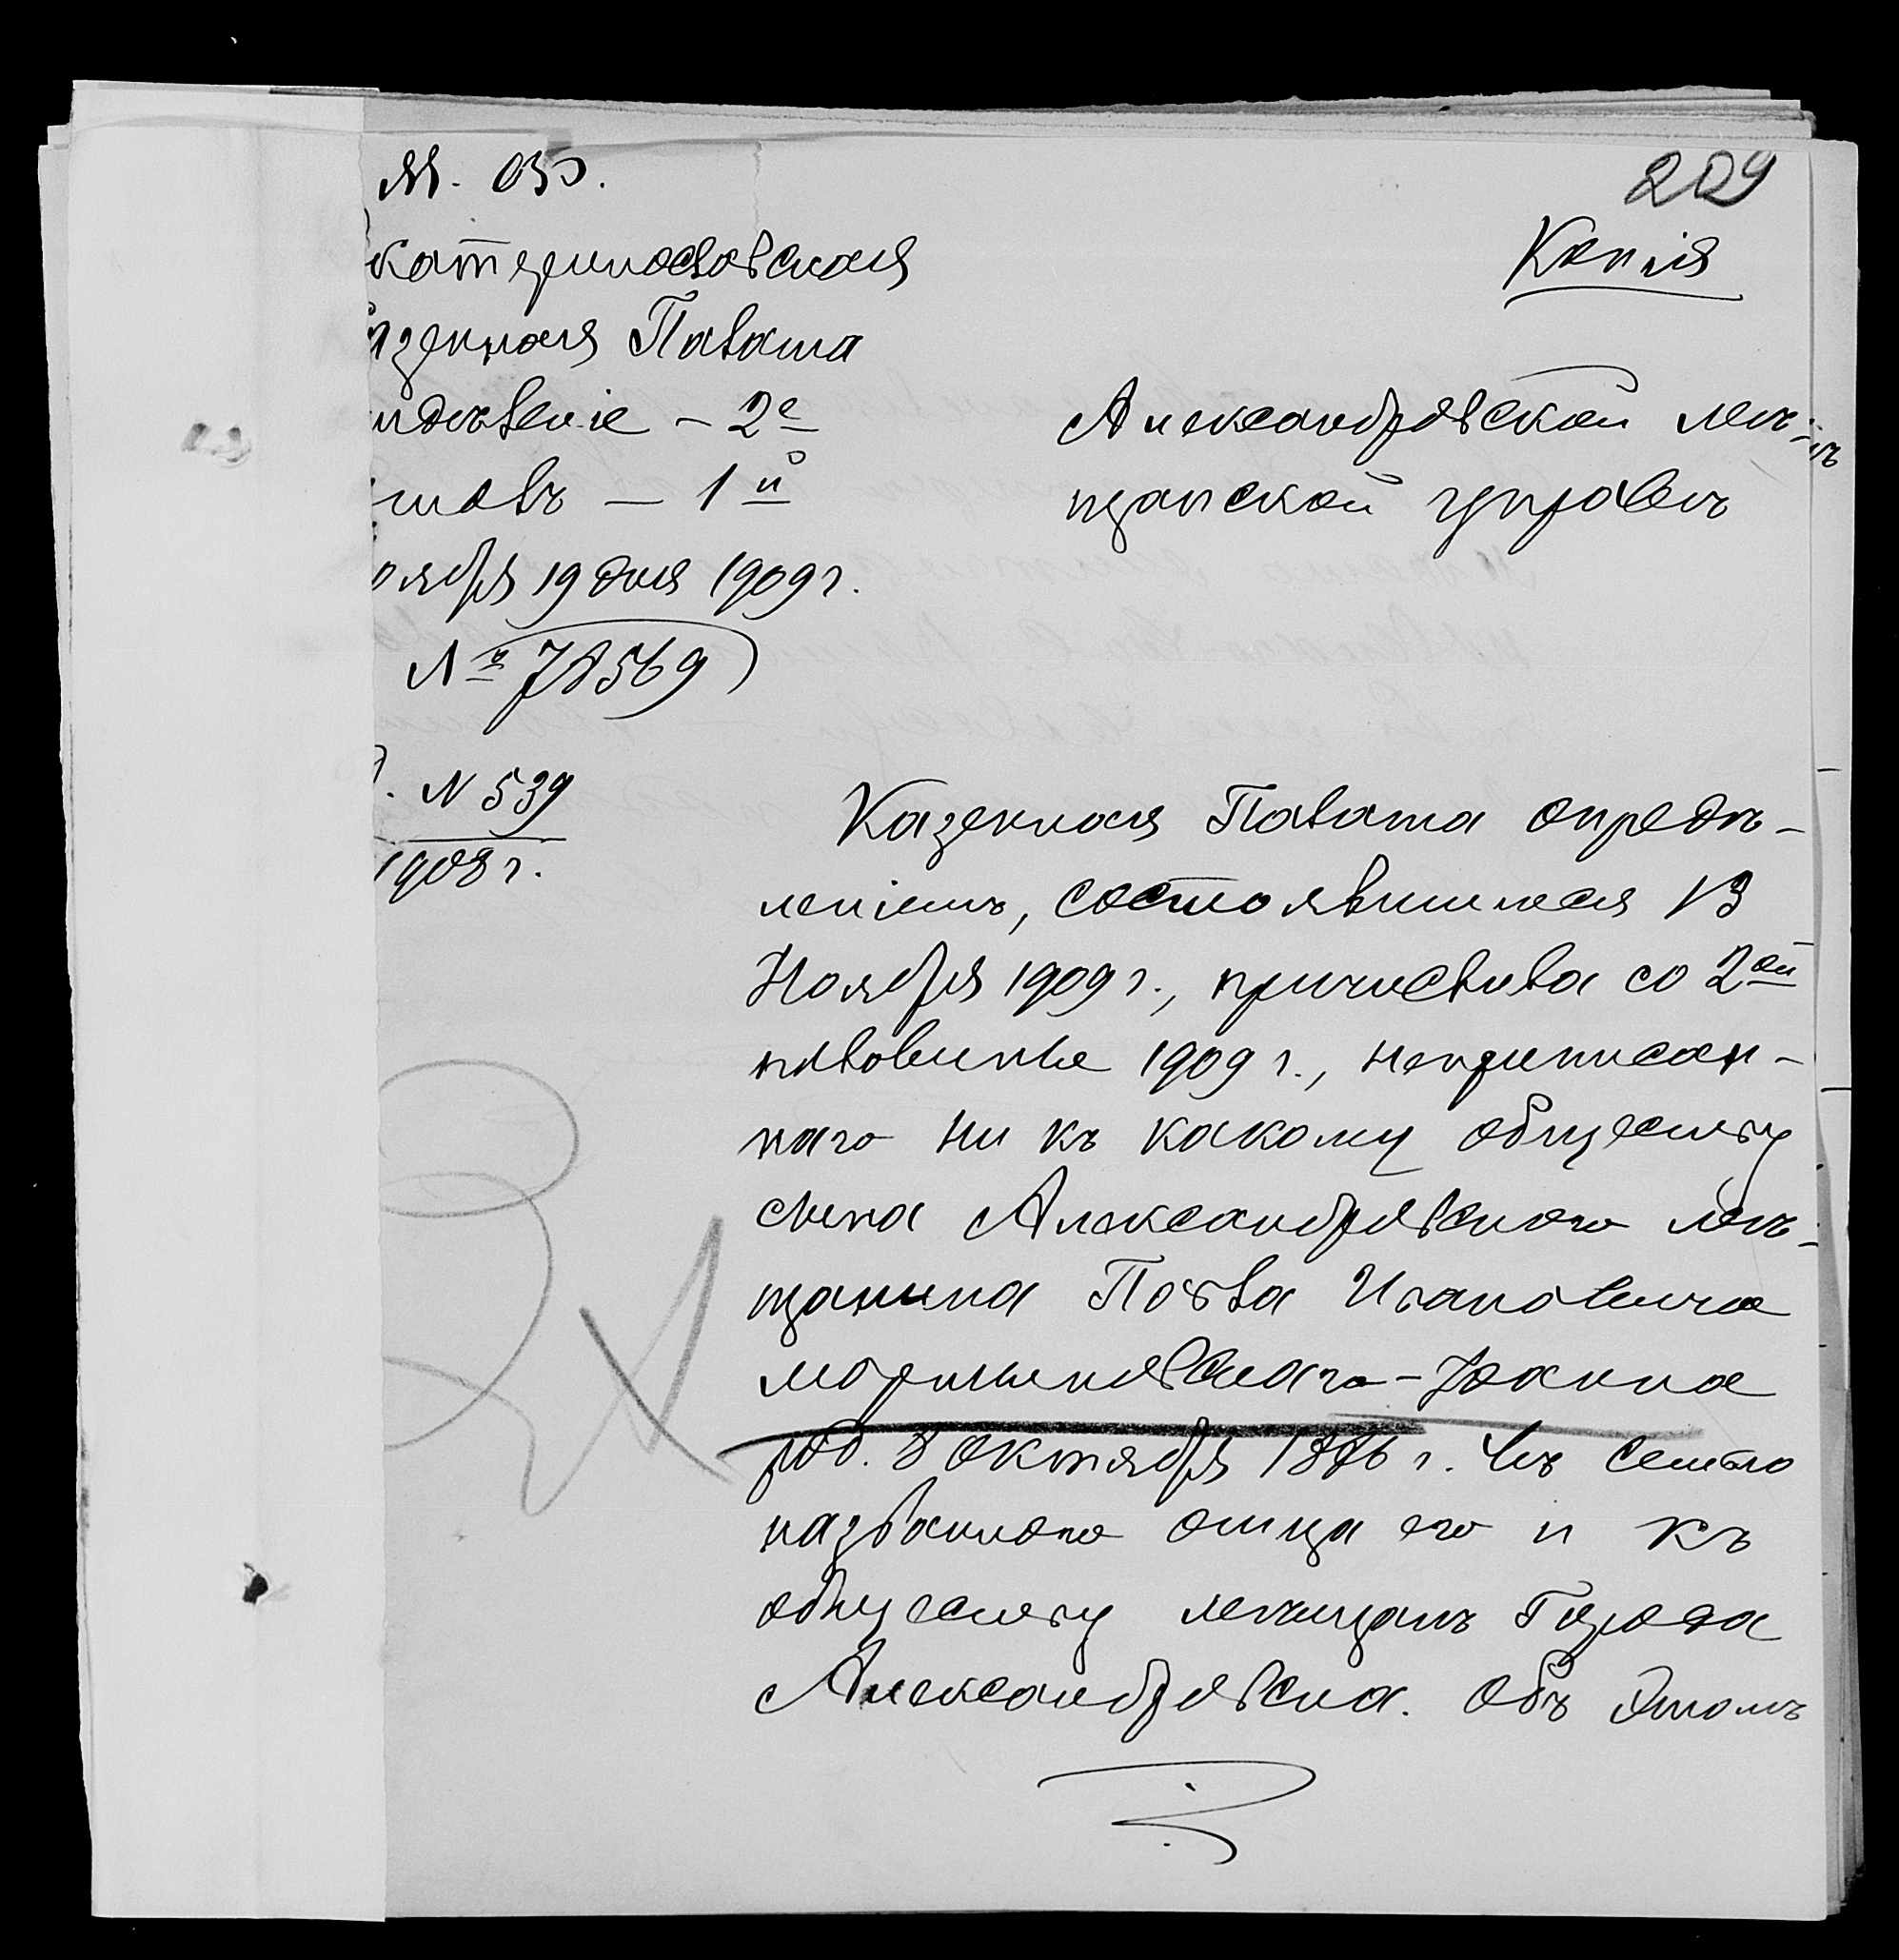 229
Копія
М. Ф.
катеринославская
азенная Палата
тдѣленіе – 2е
толъ – 1й
оября 19 дня 1909 г.
№ 78569
Александровской мѣ-
щанской управѣ
. N 539
1908 г.
Казенная Палата опредѣ-
леніемъ, состоявшимся 13
Ноября 1909 г., причислила со 2ой
половины 1909 г., неприписан-
наго ни къ какому обществу
сына Александровскаго мѣ-
щанина Павла Ивановича
Мартыновскаго-Іоанна
род. 8 октября 1886 г. къ семью
названнаго отца его и къ
обществу мѣщанъ Города
Александровска. Объ этомъ